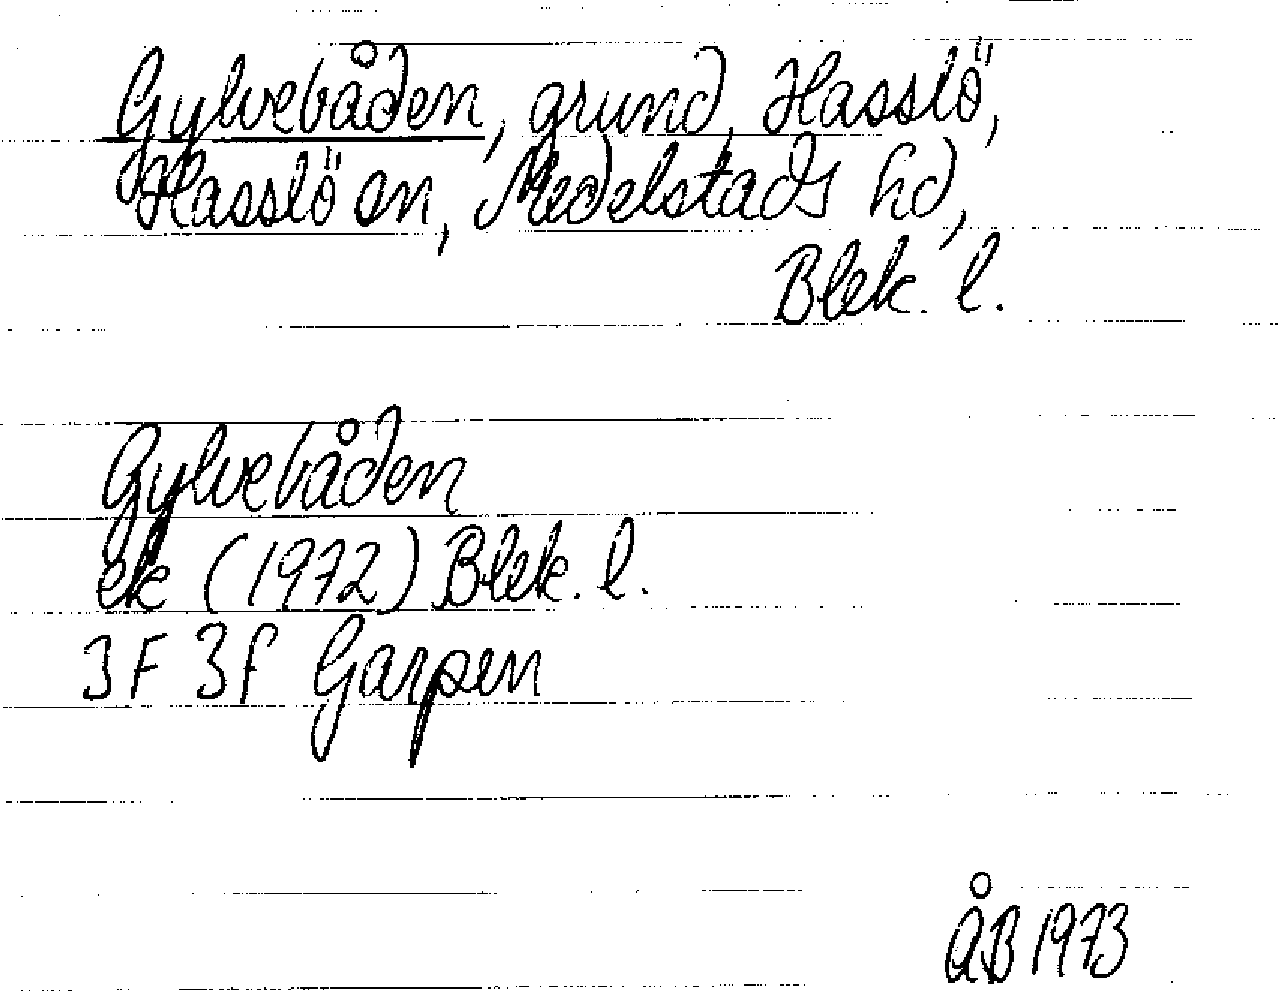 Gylvebåden, grund, Hasslö,
Hasslö sn, Medelstads hd,
Blek. l.
Gylvebåden
ek (1972) Blek. l.
3F 3f Garpen
ÅB 1973